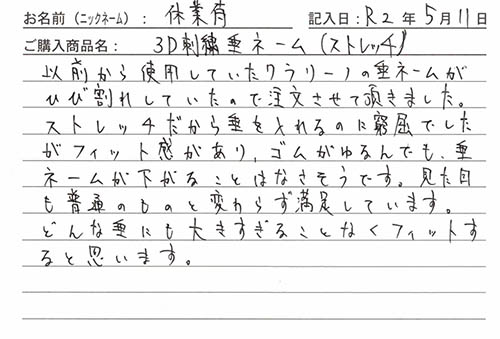 お名前(ニックネーム): 休業侍 記入日:R2年5月11日
ご購入商品名: 3D刺繍垂ネーム(ストレッチ)
以前から使用していたクラリーノの垂ネームが
ひび割れしていたので注文させて頂きました。
ストレッチだから垂を入れるのに窮屈でした
がフィット感があり、ゴムがゆるんでも、垂
ネームが下がることはなさそうです。見た目
も普通のものと変わらず満足しています。
どんな垂にも大きすぎることなくフィットす
ると思います。